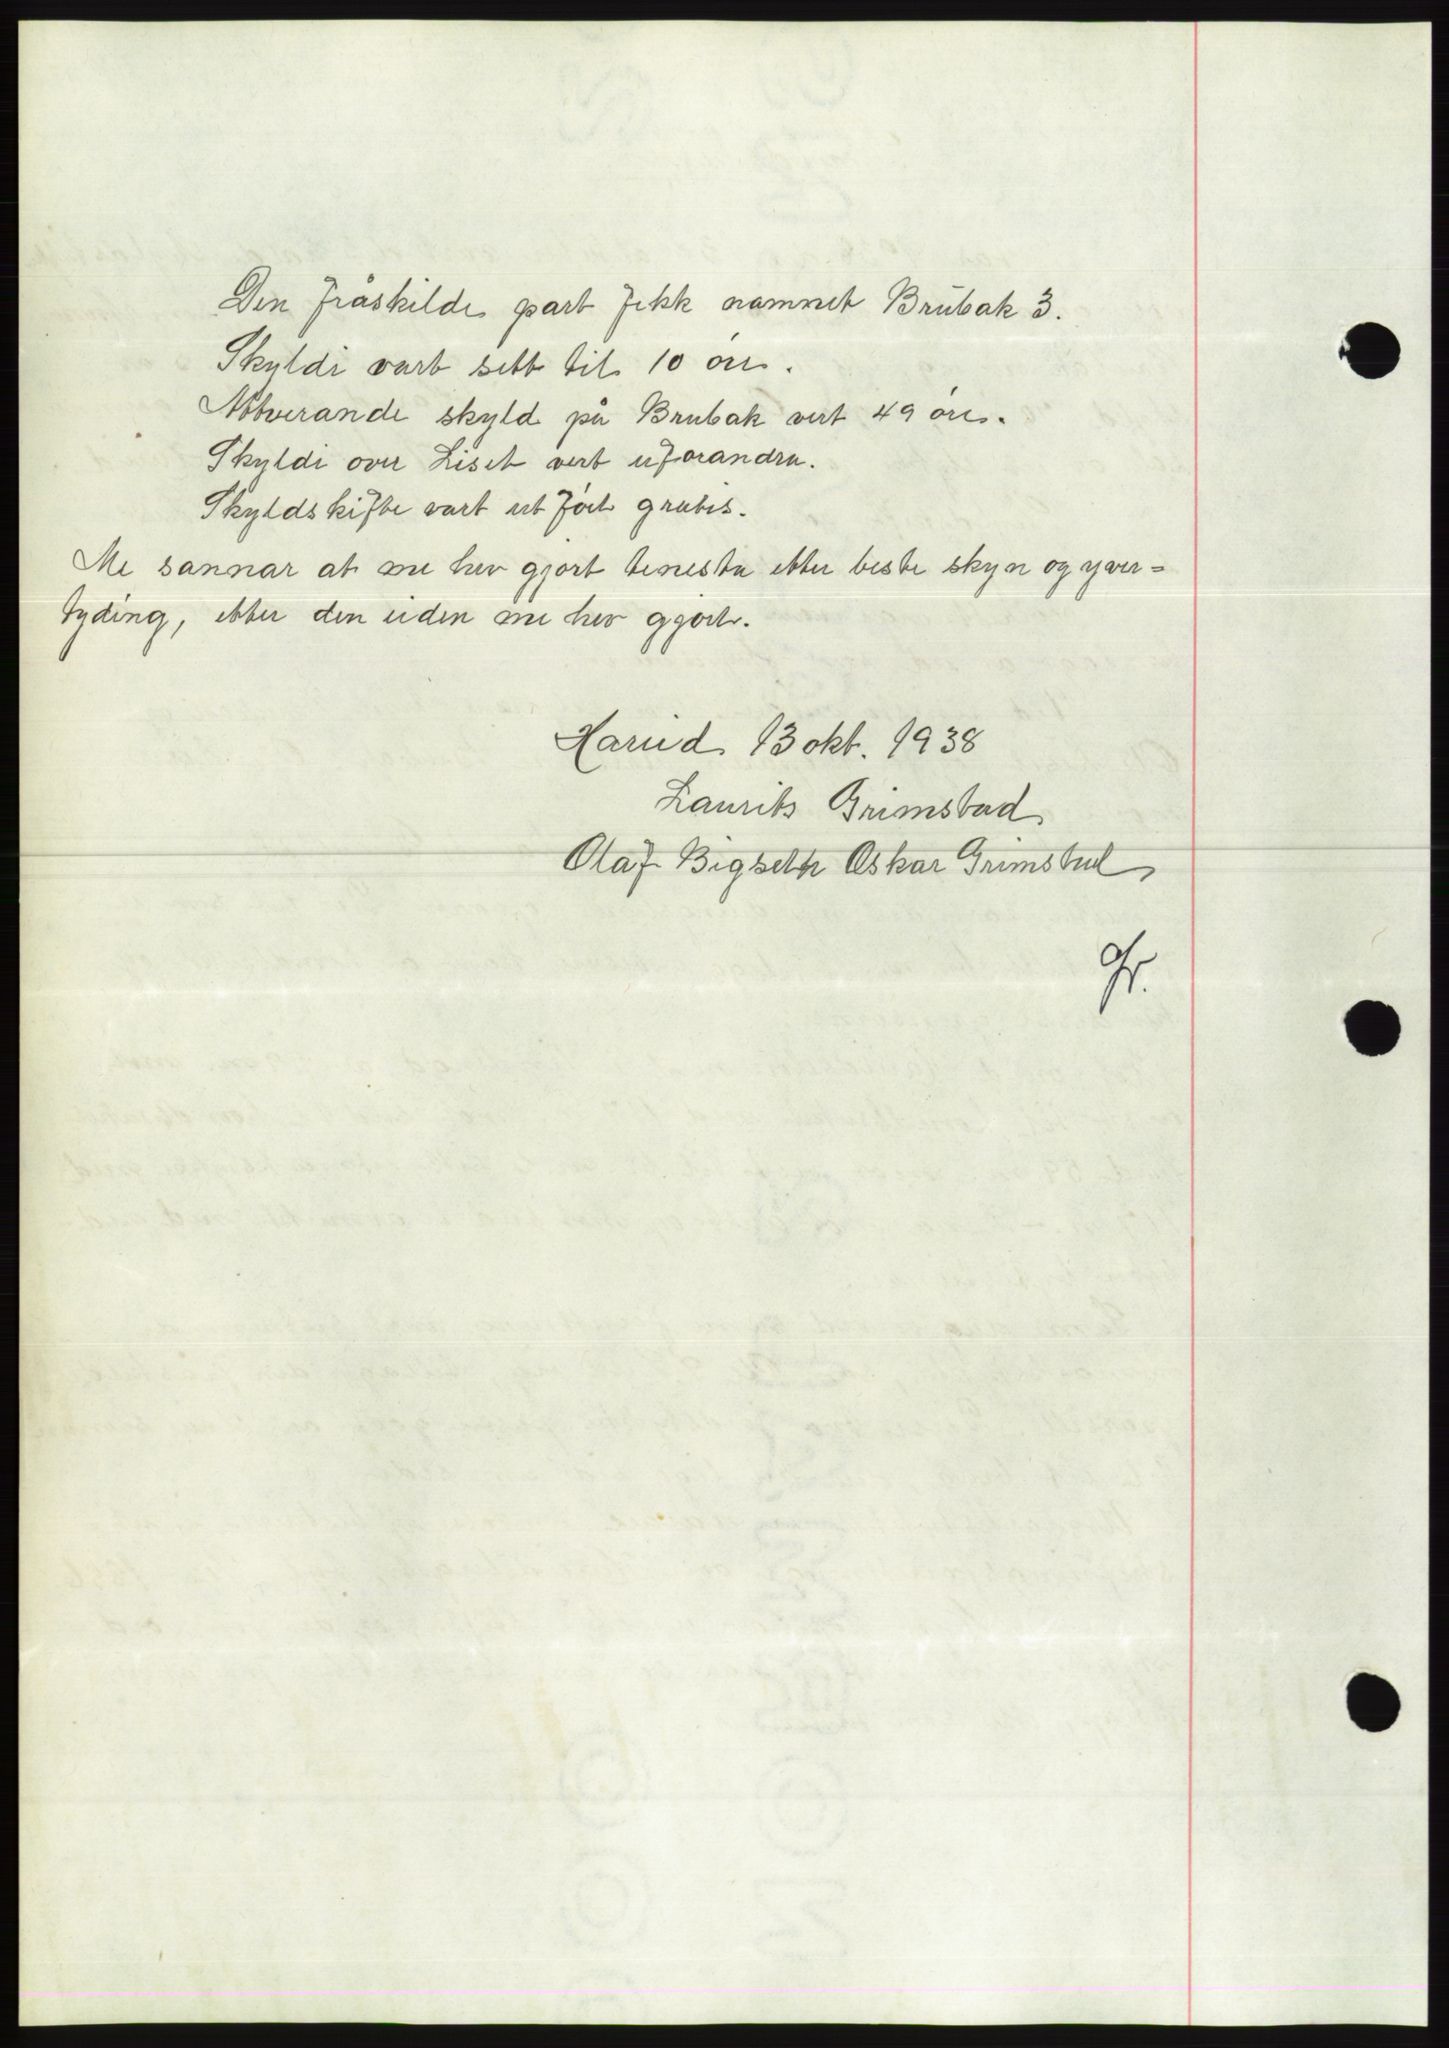 Den fråskilde part fekk namnet Brubak 3.
Skyldi vart sett til 10 öre.
Notverande skyld på Brubak vert 49 öre.
Skyldi over Liset vert uforandra.
Skyldskifte vart utfört gratis.
Me sannar at me hev gjort tenesta etter beste skyn og yver-
tyding, etter den eiden me hev gjort.
Hareid 13 okt. 1938
Laurits Grimstad
Olaf Bigseth Oskar Grimstad
Gr.